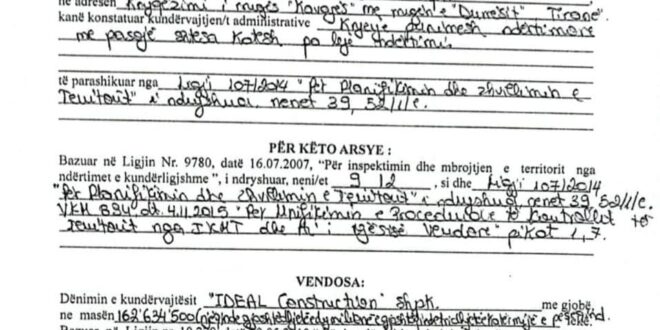 në adresën Kryqëzimi i rrugës "Kavajës" me rrugën e "Durrësit" Tiranë".
kanë konstatuar kundërvajtjen/t administrative Kryeje punimesh ndërtimore
me pasojë shtesa Katesh pa leje ndërtimi.
të parashikuar nga Ligji 107/2014 "Për planifikimin dhe zhvillimin e
Territorit" i ndryshuar, nenet 39, 52/1/e.
PËR KËTO ARSYE :
Bazuar në Ligjin Nr. 9780, datë 16.07.2007, "Për inspektimin dhe mbrojtjen e territorit nga
ndërtimet e kundërligjshme ", i ndryshuar, neni/et 9, 12, si dhe Ligji 107/2014
"Për Planifikimin dhe Zhvillimin e Territorit" i ndryshuar, nenet 39, 52/1/e.
VKM 894 dt. 4.11.2015 "Për Unifikimin e Procedurave të Kontrollit të
Territorit nga IKMT dhe i Njësisë Vendore" pikat 1, 7.
VENDOSA:
Dënimin e kundërvajtësit "IDEAL Construction" shpk. me gjobë,
në masën 162'634'500